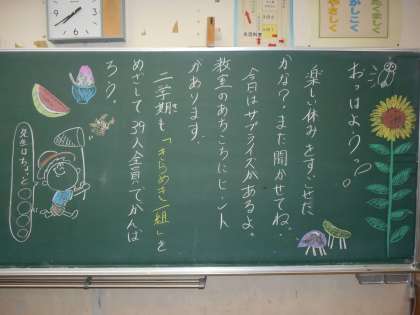 おっはよ〜うっ!
楽しい休みをすごせた
かな?また聞かせてね。
今日はサプライズがあるよ。
教室のあちこちにヒント
があります。
二学期も「きらめき一組」を
めざして39人全員でがんば
ろう。
先生はちょっと○○○○